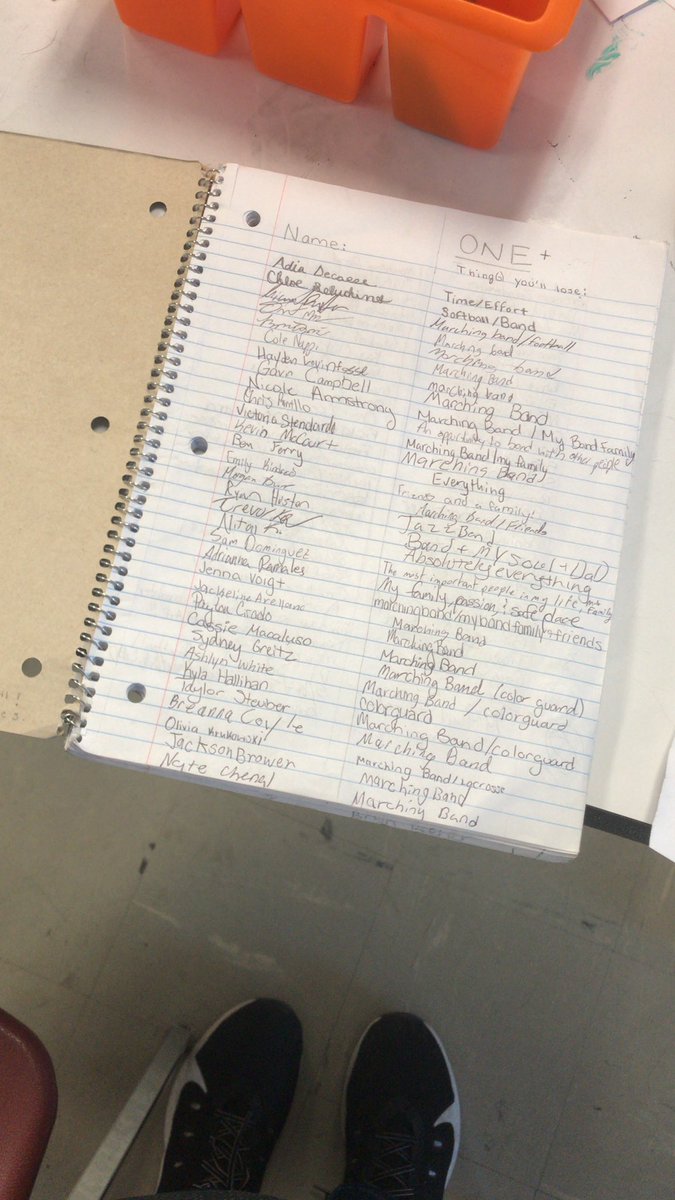 Name: ONE +
Thing(s) you'll lose:
Adia Time/Effort
Chloe Softball/Band
Marching band/football
Marching band
Marching band
Cole Marching Band
Hayden marching band
Gavin Campbell Marching Band
Nicole Armstrong Marching Band / My Band Family
Chris An opportunity to bond with other people
Victoria Marching Band/my family
Kevin McCourt Marching Band
Ben Terry Everything
Emily Friends and a family!
Morgan Marching Band/Friends
Ryan Heston Jazz Band
Trevor Band + My Soul +
Nitay A. Absolutely everything
Sam Dominguez The most important people in my life, my family
Adrianna My family, passion, safe place
Jenna Voigt marchingband/my band family+friends
Jackeline Arellano Marching Band
Payton Crado Marching Band
Cassie Macaluso Marching Band
Sydney Greitz Marching Band (color guard)
Ashlyn White Marching Band / colorguard
Kyla Hallihan colorguard
Taylor Steuber Marching Band/colorguard
Breanna Coyle Marching Band
Olivia Krukowski Marching Band/lacrosse
Jackson Brower Marching Band
Nate Marching Band